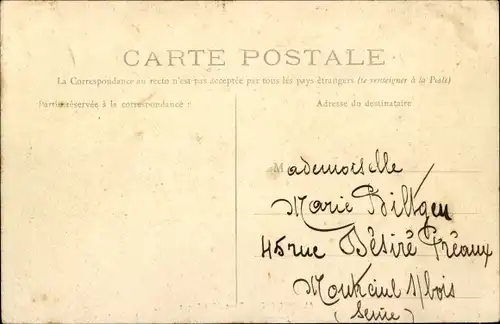 CARTE POSTALE
La Correspondance au recto n'est pas acceptée par tous les pays étrangers (se renseigner à la Poste)
Partie réservée à la correspondance
Adresse du destinataire
Mademoiselle
Marie Biltgen
45 rue Désiré Préaux
Montreuil s/bois
(Seine)